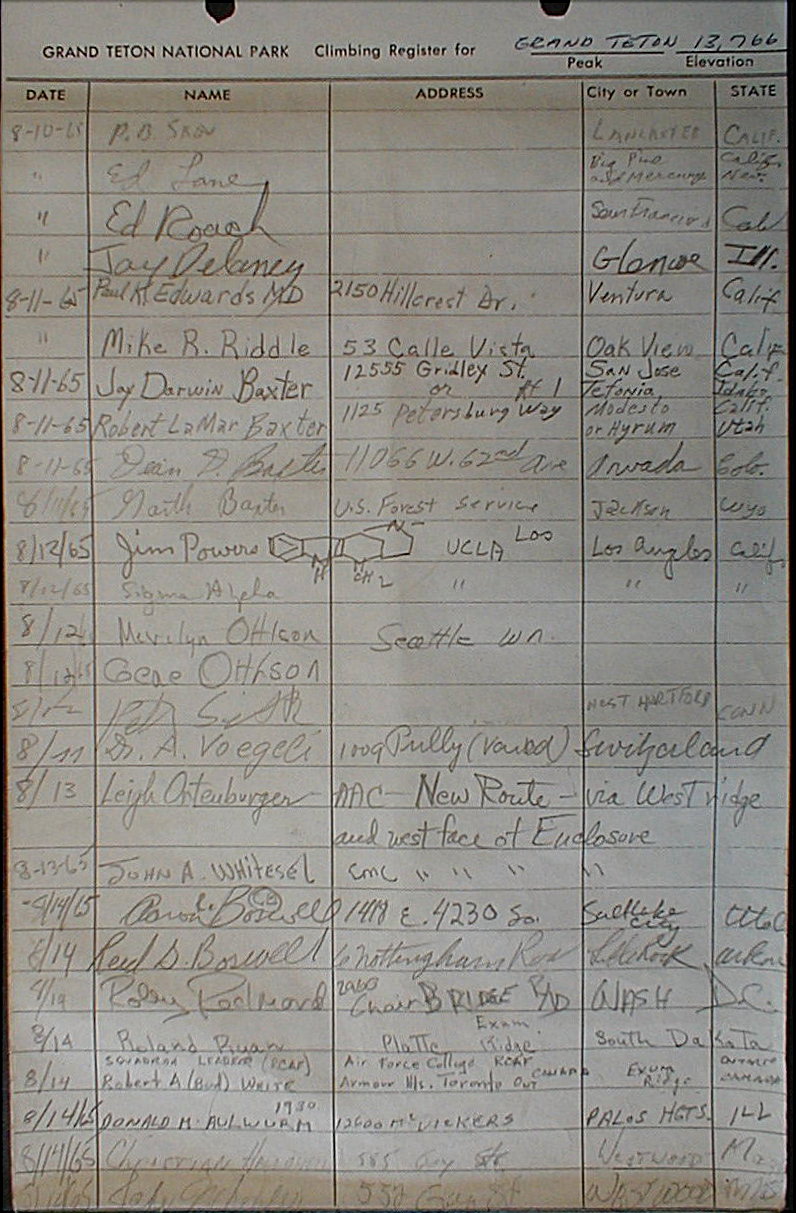 GRAND TETON NATIONAL PARK Climbing Register for GRAND TETON 13,766
Peak Elevation
DATE NAME ADDRESS City or Town STATE
8-10-65 LANCASTER CALIF.
" Ed Lane Big Pine Calif.
and Mercury Nev.
" Ed Roach San Francisco Cal
" Jay Delaney Glencoe Ill.
8-11-65 Paul K. Edwards MD 2150 Hillcrest Dr. Ventura Calif
" Mike R. Riddle 53 Calle Vista Oak View Calif
8-11-65 Jay Darwin Baxter 12555 Gridley St. San Jose Calif.
or Rt 1 Tetonia Idaho
8-11-65 Robert LaMar Baxter 1125 Petersburg Way Modesto Calif.
or Hyrum Utah
8-11-65 Dean D. Baxter 11066 W. 62nd Ave Arvada Colo.
8/11/65 Garth Baxter U.S. Forest Service Jackson Wyo
8/12/65 Jim Powers N H CH2 UCLA Los Los Angles Calif
8/12/65 Sigma Alpha " " "
8/12 Marilyn Ohlson Seattle Wn.
8/12/65 Gene Ohlson
8/12 WEST HARTFORD CONN
8/11 Dr. A. Voegeli 1009 Pully (Vaud) Switzerland
8/13 Leigh Ortenburger AAC - New Route - via West ridge
and west face of Enclosure
8-13-65 JOHN A. WHITESEL CMC " " " "
8/14/65 Boswell 1418 E. 4230 So. Salt Lake City Utah
8/14 Reed D. Boswell 6 Nottingham Little Rock
Redmond 2960 Chain BRIDGE RD WASH D.C.
8/14 Roland Ryan Platte Exum Ridge South Dakota
8/14 SQUADRON LEADER (RCAF) Air Force College RCAF Exum Ontario
Robert A (Bud) White Armour Hts. Toronto Ont CANADA Ridge CANADA
8/14/65 DONALD M. AULWURM 1930 12600 McVICKERS PALOS HGTS. ILL
8/14/65 CHRISTIAN 585 Gay St WESTWOOD
John 552 Gay St WESTWOOD